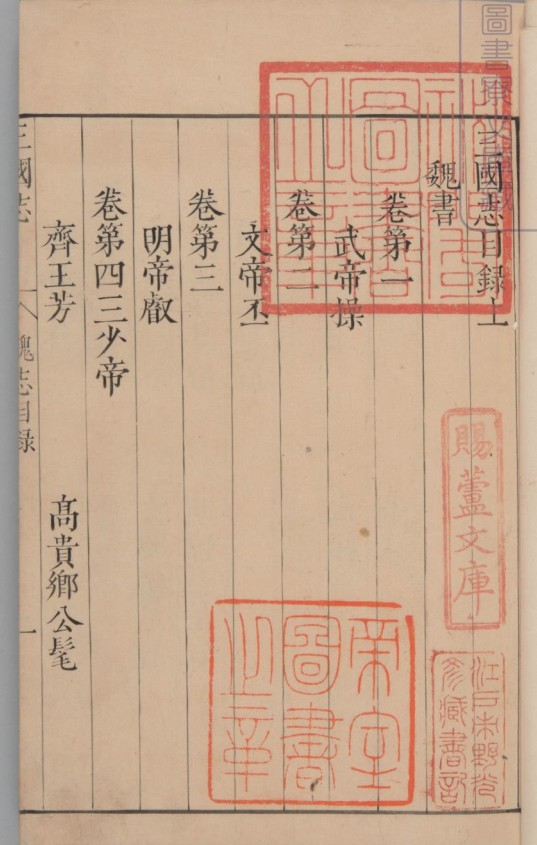 三國志目録上
魏書
卷第一
武帝操
卷第二
文帝丕
卷第三
明帝叡
卷第四三少帝
齊王芳　髙貴鄉公髦
三國志　魏志目録　一
圖書寮
賜蘆文庫
江戸市野光彦藏書記
帝室圖書之章